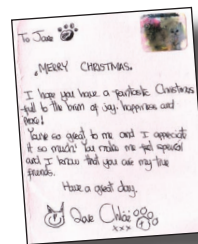 To Jane
MERRY CHRISTMAS.
I hope you have a fantastic Christmas
full to the brim of joy, happiness and
more!
You're so great to me and I appreciate
it so much! You make me feel special
and I know that you are my true
friends.
Have a great day.
Love Chloe
xxx